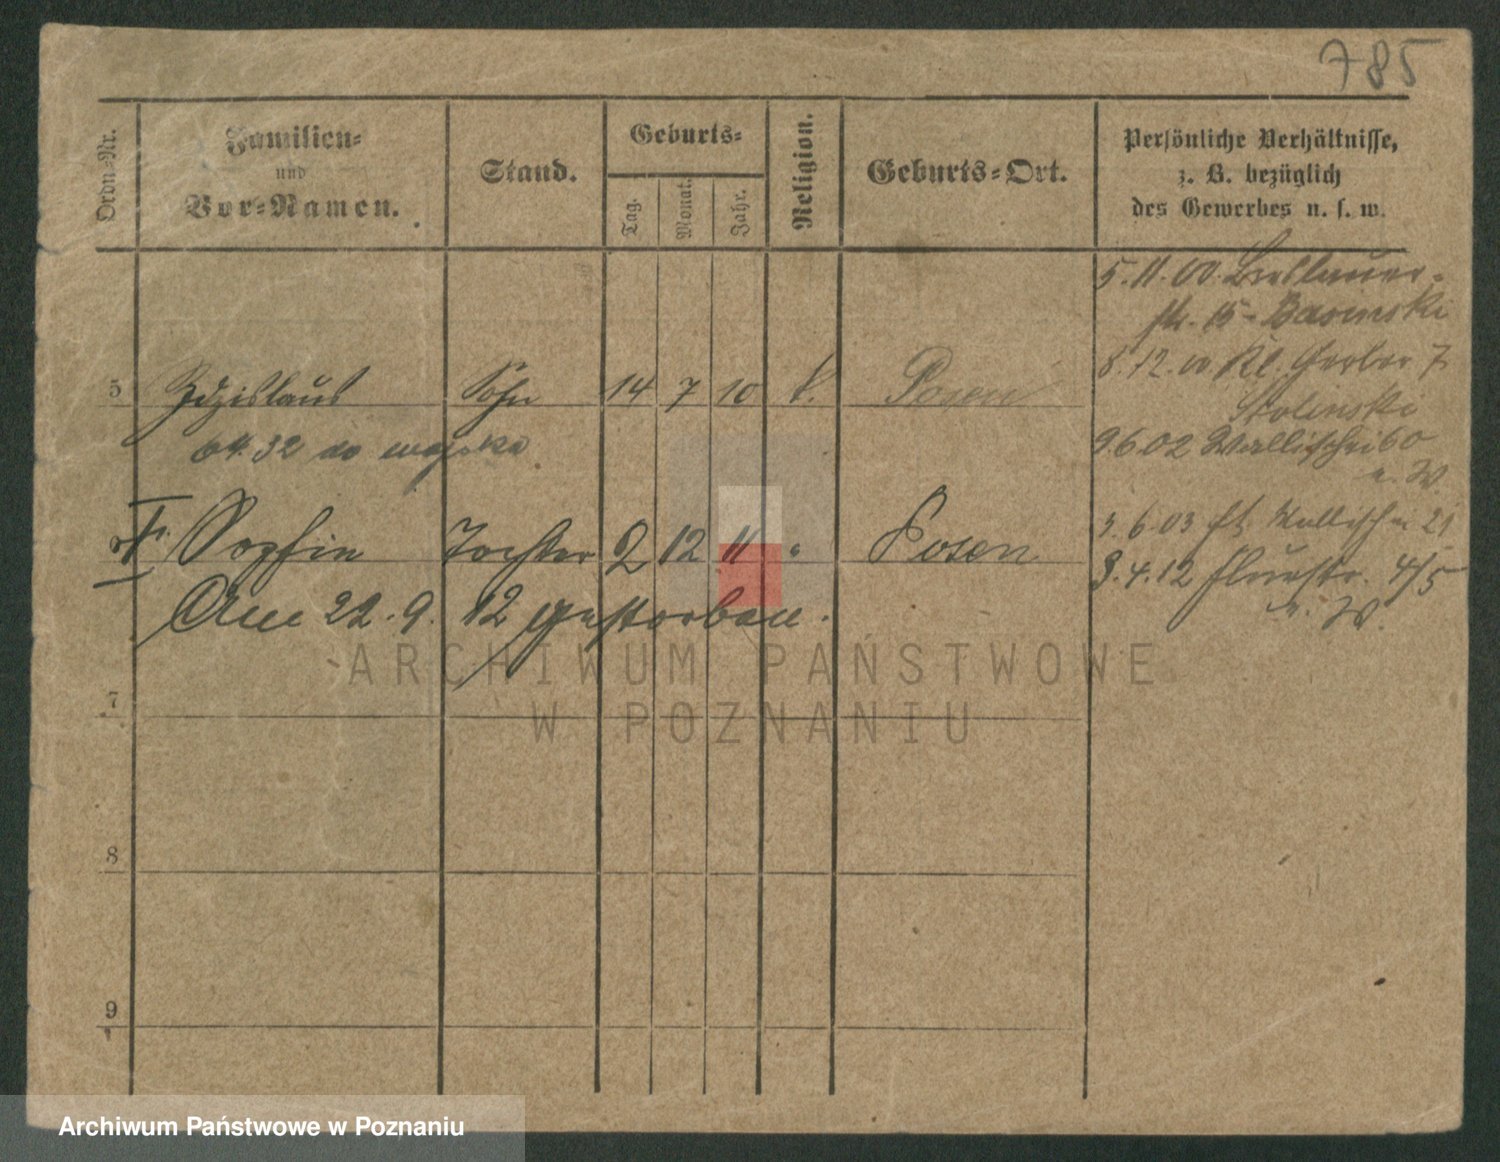 785
Ordn.-Nr.
Familien-
und
Vor-Namen.
Stand.
Geburts-
Tag.
Monat.
Jahr.
Religion.
Geburts-Ort.
Persönliche Verhältnisse,
z. B. bezüglich
des Gewerbes u. s. w.
5.11.00. Breslauer-
str. 15 - Basinski
8.12.00 Kl. Gerber 7
Stolinski
5 Zdzislaus Sohn 14 7 10 k. Posen
9.6.02 Wallischei 60
u. W.
64.32 do wojska
3.6.03 Wallischei 21
Sophie Tochter 2 12 11 " Posen
3.4.12 4/5
u. W.
Am 22.9.12 gestorben.
7
8
9
ARCHIWUM PAŃSTWOWE
W POZNANIU
Archiwum Państwowe w Poznaniu